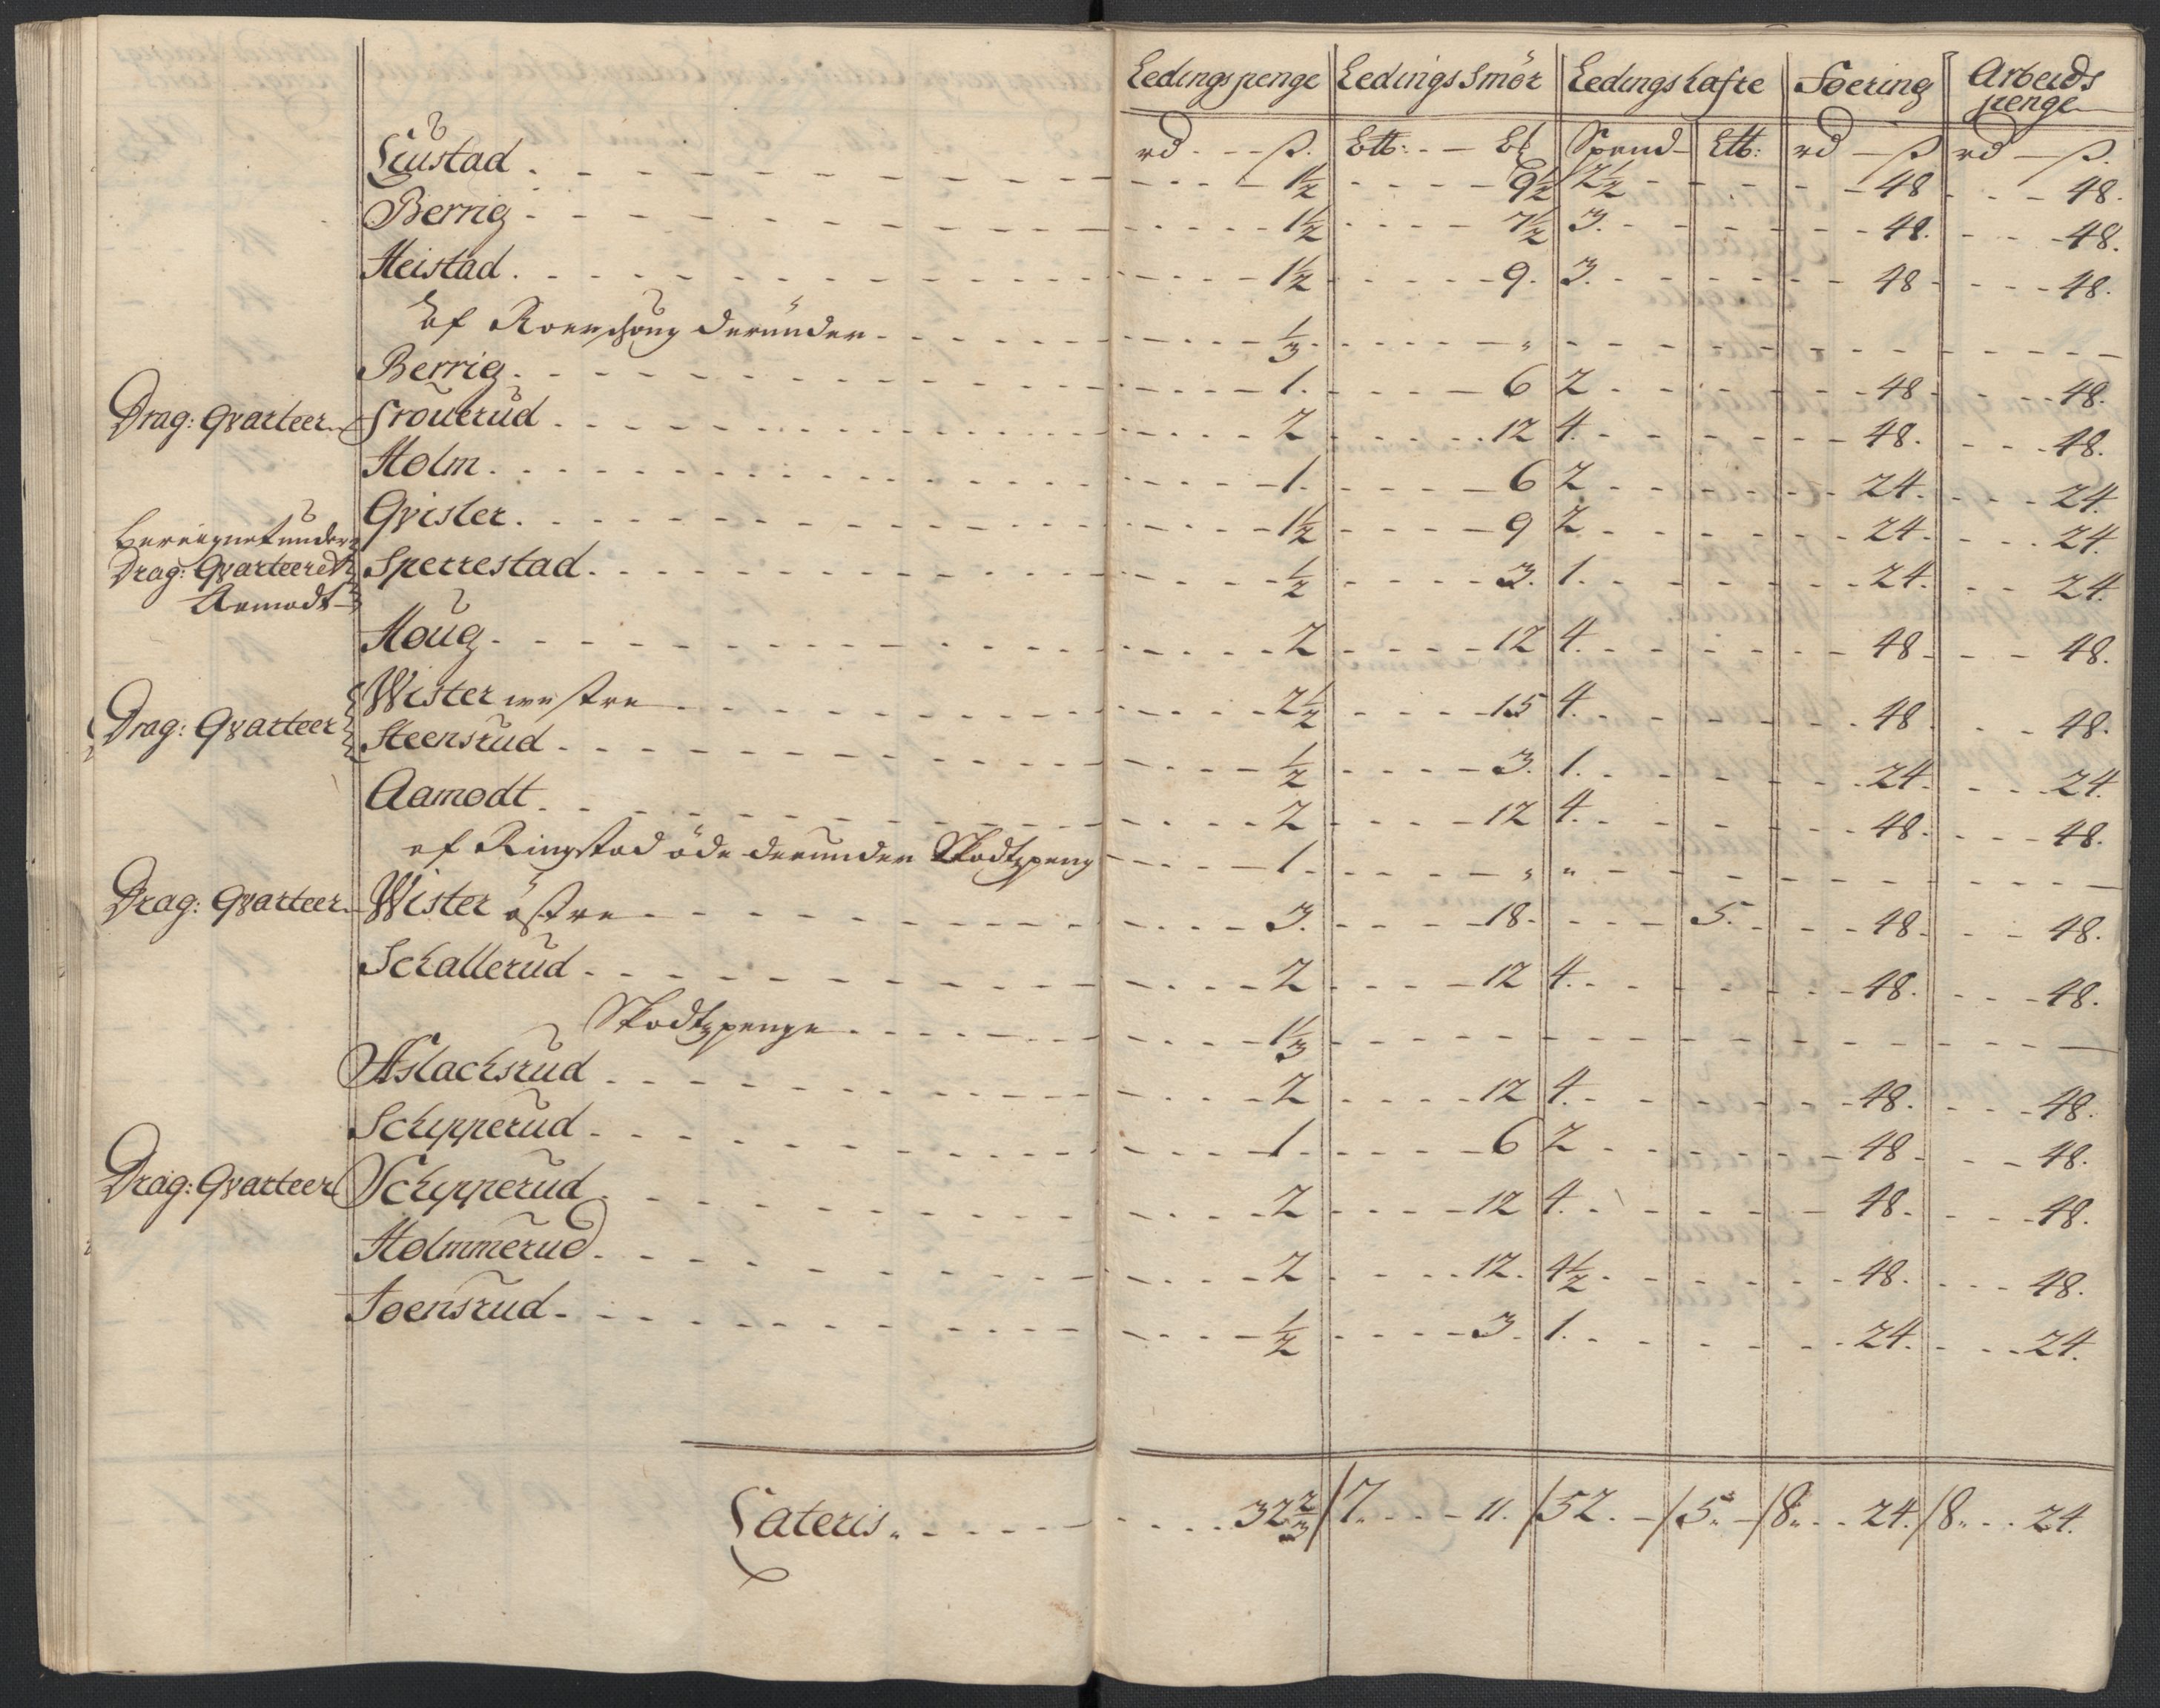 Ledingspenge Ledings Smör Ledingshafre Foering Arbeids
penge
rd ß. Ett: Spand Ett: rd ß rd ß.
Liustad 1½ 9½ 2½ 48 48.
Berrig 1½ 7½ 3. 48. 48.
Heistad 1½ 9. 3. 48 48.
af derunder ⅓ "
Berrig 1. 6 2 48 48.
Drag: Qvarteer Frouerud 2 12 4. 48. 48.
Holm 1. 6 2 24. 24.
Qvister 1½ 9 2 24. 24.
Bereignet under
Drag: Qvarteeret Sperrestad ½ 3. 1. 24. 24.
Aamodt
Houg 2 12 4. 48 48.
Drag: Qvarteer Wister westre 2½ 15 4. 48 48.
Steensrud ½ 3. 1. 24. 24.
Aamodt 2 12 4. 48. 48.
af Ringstad öde derunder Skodtzpeng 1. " "
Drag: Qvarteer Wister östre 3. 18. 5. 48. 48.
Schallerud 2 12 4. 48. 48.
Skodtzpenge 1⅓
Aslachsrud 2 12 4. 48. 48.
Schypperud 1 6 2 48 48.
Drag: Qvarteer Schypperud 2 12 4. 48. 48.
Holmmerud 2 12. 4½ 48. 48.
Toensrud ½ 3. 1. 24. 24.
Lateris. 32⅔ / 7. 11. / 52. / 5. / 8. 24. / 8. 24.